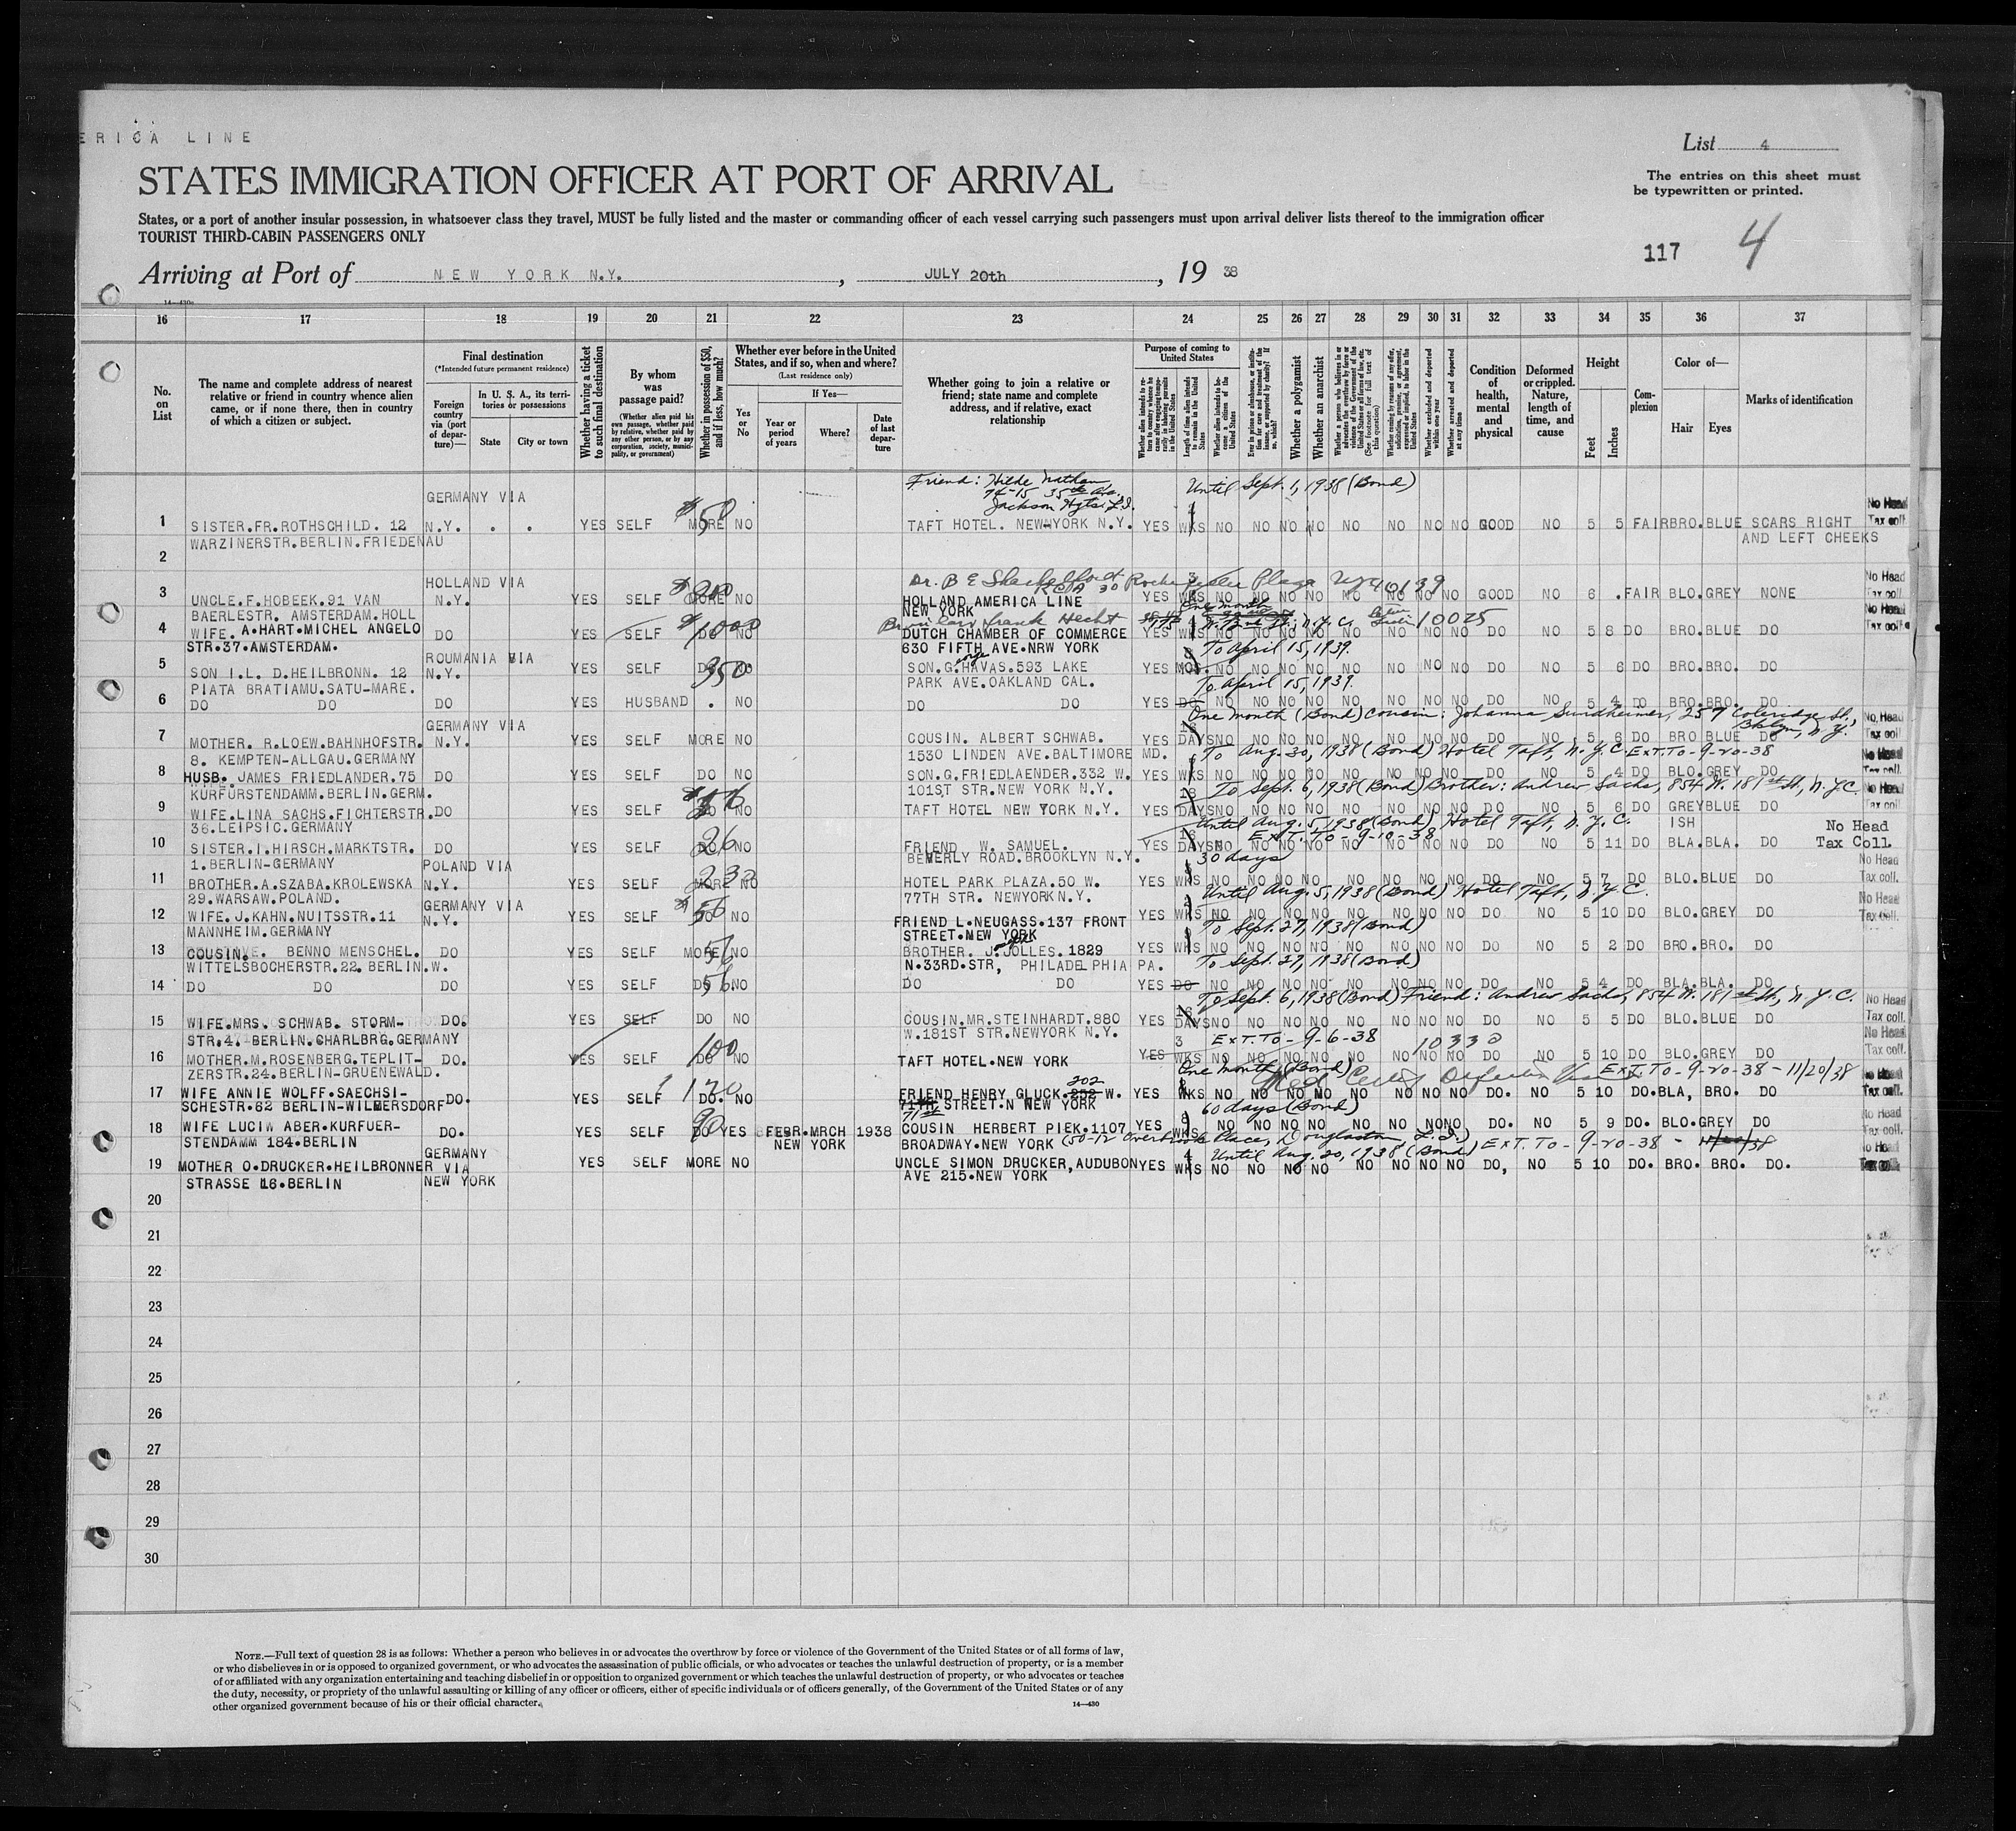 ERICA LINE
List 4
STATES IMMIGRATION OFFICER AT PORT OF ARRIVAL
The entries on this sheet must
be typewritten or printed.
States, or a port of another insular possession, in whatsoever class they travel, MUST be fully listed and the master or commanding officer of each vessel carrying such passengers must upon arrival deliver lists thereof to the immigration officer
TOURIST THIRD-CABIN PASSENGERS ONLY
117 4
Arriving at Port of NEW YORK N.Y. , JULY 20th , 19 38
16 17 18 19 20 21 22 23 24 25 26 27 28 29 30 31 32 33 34 35 36 37
No. on List
The name and complete address of nearest relative or friend in country whence alien came, or if none there, then in country of which a citizen or subject.
Final destination
(*Intended future permanent residence)
Foreign country via (port of departure)—
In U. S. A., its territories or possessions
State City or town
Whether having a ticket to such final destination
By whom was passage paid?
(Whether alien paid his own passage, whether paid by relative, whether paid by any other person, or by any corporation, society, municipality, or government)
Whether in possession of $50, and if less, how much?
Whether ever before in the United States, and if so, when and where?
(Last residence only)
If Yes—
Yes or No Year or period of years Where? Date of last departure
Whether going to join a relative or friend; state name and complete address, and if relative, exact relationship
Purpose of coming to United States
Length of time alien intends to remain in the United States
Whether alien intends to become a citizen of the United States
Whether a polygamist
Whether an anarchist
Whether arrested and deported at any time
Condition of health, mental and physical
Deformed or crippled. Nature, length of time, and cause
Height
Feet Inches
Complexion
Color of—
Hair Eyes
Marks of identification
Friend: Hilde Nathan
74-15 35th Ave.
Jackson Hgts. L.I.
Until Sept. 1, 1938 (Bond)
GERMANY VIA
1 SISTER.FR.ROTHSCHILD. 12 N.Y. . . YES SELF MORE $50 NO TAFT HOTEL. NEW-YORK N.Y. YES WKS NO NO NO NO NO NO NO NO GOOD NO 5 5 FAIR BRO.BLUE SCARS RIGHT No Head Tax coll.
WARZINERSTR.BERLIN.FRIEDENAU AND LEFT CHEEKS
2
HOLLAND VIA
Dr. B E Rockefeller Plaza
RCA 30
3 UNCLE.F.HOBEEK.91 VAN N.Y. YES SELF MORE NO HOLLAND AMERICA LINE YES 3 WKS NO NO NO NO NO NO NO NO GOOD NO 6 . FAIR BLO.GREY NONE No Head Tax coll.
BAERLESTR. AMSTERDAM.HOLL NEW YORK
One month
Frank Hecht
10025
4 WIFE. A.HART.MICHEL ANGELO DO YES SELF DO $1000 NO DUTCH CHAMBER OF COMMERCE YES WKS NO NO NO NO NO NO NO NO DO NO 5 8 DO BRO.BLUE DO No Head Tax coll.
STR.37.AMSTERDAM. 630 FIFTH AVE.NRW YORK
ROUMANIA VIA
To April 15, 1939.
5 SON I.L. D.HEILBRONN. 12 N.Y. YES SELF DO 350 NO SON.G.HAVAS.593 LAKE YES MOS. NO NO NO NO NO NO NO NO DO NO 5 6 DO BRO.BRO. DO
PIATA BRATIAMU.SATU-MARE. PARK AVE.OAKLAND CAL.
To April 15, 1939.
6 DO DO DO YES HUSBAND . NO DO DO YES DO NO NO NO NO NO NO NO NO DO NO 5 4 DO BRO.BRO. DO
One month (Bond) Cousin: Johanna Sundheimer, 257 Coleridge St.,
Bklyn, N.Y.
GERMANY VIA
7 MOTHER. R.LOEW.BAHNHOFSTR. N.Y. YES SELF MORE NO COUSIN. ALBERT SCHWAB. YES DAYS NO NO NO NO NO NO NO NO DO NO 5 6 DO BRO BLUE DO No Head Tax coll.
8. KEMPTEN-ALLGAU.GERMANY 1530 LINDEN AVE.BALTIMORE MD.
To Aug. 30, 1938 (Bond) Hotel Taft, N.Y.C. EXT. TO-9-20-38
8 HUSB. JAMES FRIEDLANDER.75 DO YES SELF DO NO SON.G.FRIEDLAENDER.332 W. YES WKS NO NO NO NO NO NO NO NO DO NO 5 4 DO BLO.GREY DO No Head Tax coll.
KURFURSTENDAMM.BERLIN.GERM. 101ST STR.NEW YORK N.Y.
To Sept. 6, 1938 (Bond) Brother: Andrew Sachs, 854 W. 181st St, N.Y.C.
9 WIFE.LINA SACHS.FICHTERSTR. DO YES SELF DO NO TAFT HOTEL NEW YORK N.Y. YES DAYS NO NO NO NO NO NO NO NO DO NO 5 6 DO GREYBLUE DO No Head Tax coll.
36.LEIPSIC.GERMANY ISH
Until Aug. 5, 1938 (Bond) Hotel Taft, N.Y.C.
EXT. TO-9-10-38
10 SISTER.I.HIRSCH.MARKTSTR. DO YES SELF DO 26 NO FRIEND W. SAMUEL. YES DAYS NO NO NO NO NO NO NO NO DO NO 5 11 DO BLA.BLA. DO No Head Tax Coll.
1.BERLIN-GERMANY BEVERLY ROAD.BROOKLYN N.Y.
POLAND VIA
30 days
11 BROTHER.A.SZABA.KROLEWSKA N.Y. YES SELF MORE 230 NO HOTEL PARK PLAZA.50 W. YES WKS NO NO NO NO NO NO NO NO DO NO 5 7 DO BLO.BLUE DO No Head Tax coll.
29.WARSAW.POLAND. 77TH STR. NEWYORK N.Y.
GERMANY VIA
Until Aug. 5, 1938 (Bond) Hotel Taft, N.Y.C.
12 WIFE.J.KAHN.NUITSSTR.11 N.Y. YES SELF DO 56 NO FRIEND L.NEUGASS.137 FRONT YES WKS NO NO NO NO NO NO NO NO DO NO 5 10 DO BLO.GREY DO No Head Tax coll.
MANNHEIM.GERMANY STREET.NEW YORK
To Sept. 27, 1938 (Bond)
13 COUSIN. BENNO MENSCHEL. DO YES SELF MORE 56 NO BROTHER. J.JOLLES. 1829 YES WKS NO NO NO NO NO NO NO NO DO NO 5 2 DO BRO.BRO. DO
WITTELSBOCHERSTR.22. BERLIN.W. N.33RD.STR, PHILADELPHIA PA.
To Sept. 27, 1938 (Bond)
14 DO DO DO YES SELF DO 56 NO DO DO YES DO NO NO NO NO NO NO NO NO DO NO 5 4 DO BLA.BLA. DO
To Sept. 6, 1938 (Bond) Friend: Andrew Sachs, 854 W. 181st St, N.Y.C.
15 WIFE.MRS. SCHWAB. STORM- DO. YES SELF DO NO COUSIN.MR.STEINHARDT.880 YES DAYS NO NO NO NO NO NO NO NO DO NO 5 5 DO BLO.BLUE DO No Head Tax coll.
STR.4. BERLIN.CHARLBRG.GERMANY W.181ST STR.NEWYORK N.Y.
EXT. TO-9-6-38
16 MOTHER.M.ROSENBERG.TEPLIT- DO. YES SELF DO 100 NO TAFT HOTEL.NEW YORK YES 3 WKS NO NO NO NO NO NO NO NO DO NO 5 10 DO BLO.GREY DO No Head Tax coll.
ZERSTR.24.BERLIN-GRUENEWALD.
One month (Bond) EXT. TO-9-20-38 - 11/20/38
17 WIFE ANNIE WOLFF.SAECHSI- DO. YES SELF DO. 120 NO FRIEND HENRY GLUCK.252 202 W. YES WKS NO NO NO NO NO NO NO NO DO. NO 5 10 DO.BLA, BRO. DO No Head Tax coll.
SCHESTR.62 BERLIN-WILMERSDORF 71TH 71st STREET.N NEW YORK
60 days (Bond)
18 WIFE LUCIW ABER.KURFUER- DO. YES SELF DO 90 YES FEBR.MRCH 1938 COUSIN HERBERT PIEK.1107 YES WKS NO NO NO NO NO NO NO NO DO. NO 5 9 DO. BLO.GREY DO No Head Tax coll.
STENDAMM 184.BERLIN NEW YORK BROADWAY.NEW YORK (50-12 Overbrook Place, Douglaston, L.I.) EXT. TO-9-20-38
Until Aug. 20, 1938 (Bond)
GERMANY
19 MOTHER O.DRUCKER.HEILBRONNER VIA YES SELF MORE NO UNCLE SIMON DRUCKER,AUDUBON YES 4 WKS NO NO NO NO NO NO NO NO DO, NO 5 10 DO. BRO. BRO. DO. No Head Tax coll.
STRASSE 16.BERLIN NEW YORK AVE 215.NEW YORK
20
21
22
23
24
25
26
27
28
29
30
NOTE.—Full text of question 28 is as follows: Whether a person who believes in or advocates the overthrow by force or violence of the Government of the United States or of all forms of law,
or who disbelieves in or is opposed to organized government, or who advocates the assassination of public officials, or who advocates or teaches the unlawful destruction of property, or is a member
of or affiliated with any organization entertaining and teaching disbelief in or opposition to organized government or which teaches the unlawful destruction of property, or who advocates or teaches
the duty, necessity, or propriety of the unlawful assaulting or killing of any officer or officers, either of specific individuals or of officers generally, of the Government of the United States or of any
other organized government because of his or their official character.
14—430